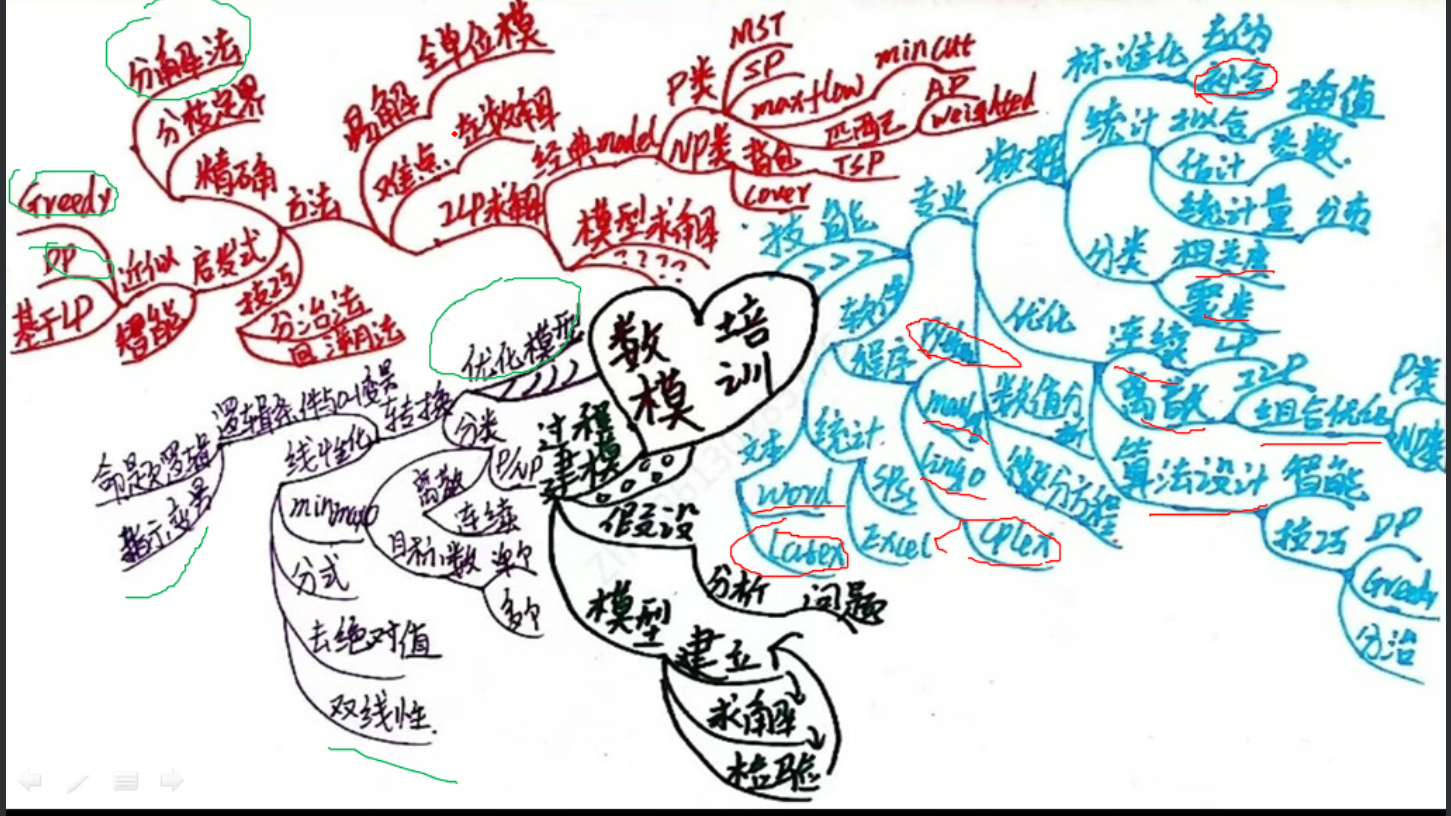 数模
培训
模型求解
????
ILP求解
经典model
P类
MST
SP
maxflow
mincut
NP类
匹配
AP
weighted
背包
TSP
cover
易解
全单位模
难点:
整数解
方法
精确
分枝定界
分解法
启发式
近似
Greedy
DP
基于LP
智能
技巧
分治法
回溯法
技能
>>>
专业
数据
标准化
去伪
补全
统计
拟合
插值
估计
参数
统计量
分布
分类
相关度
聚类
优化
连续
LP
离散
ILP
组合优化
P类
NP类
算法设计
智能
技巧
DP
Greedy
分治
数值分析
微分方程
软件
程序
lingo
cplex
统计
SPSS
Excel
文本
word
Latex
优化模型
分类
P/NP
离散
连续
目标函数
单个
多个
转换
逻辑条件与0-1变量
命题逻辑
指示变量
线性化
minmax
分式
去绝对值
双线性
建模
过程
假设
分析
问题
模型
建立
求解
检验